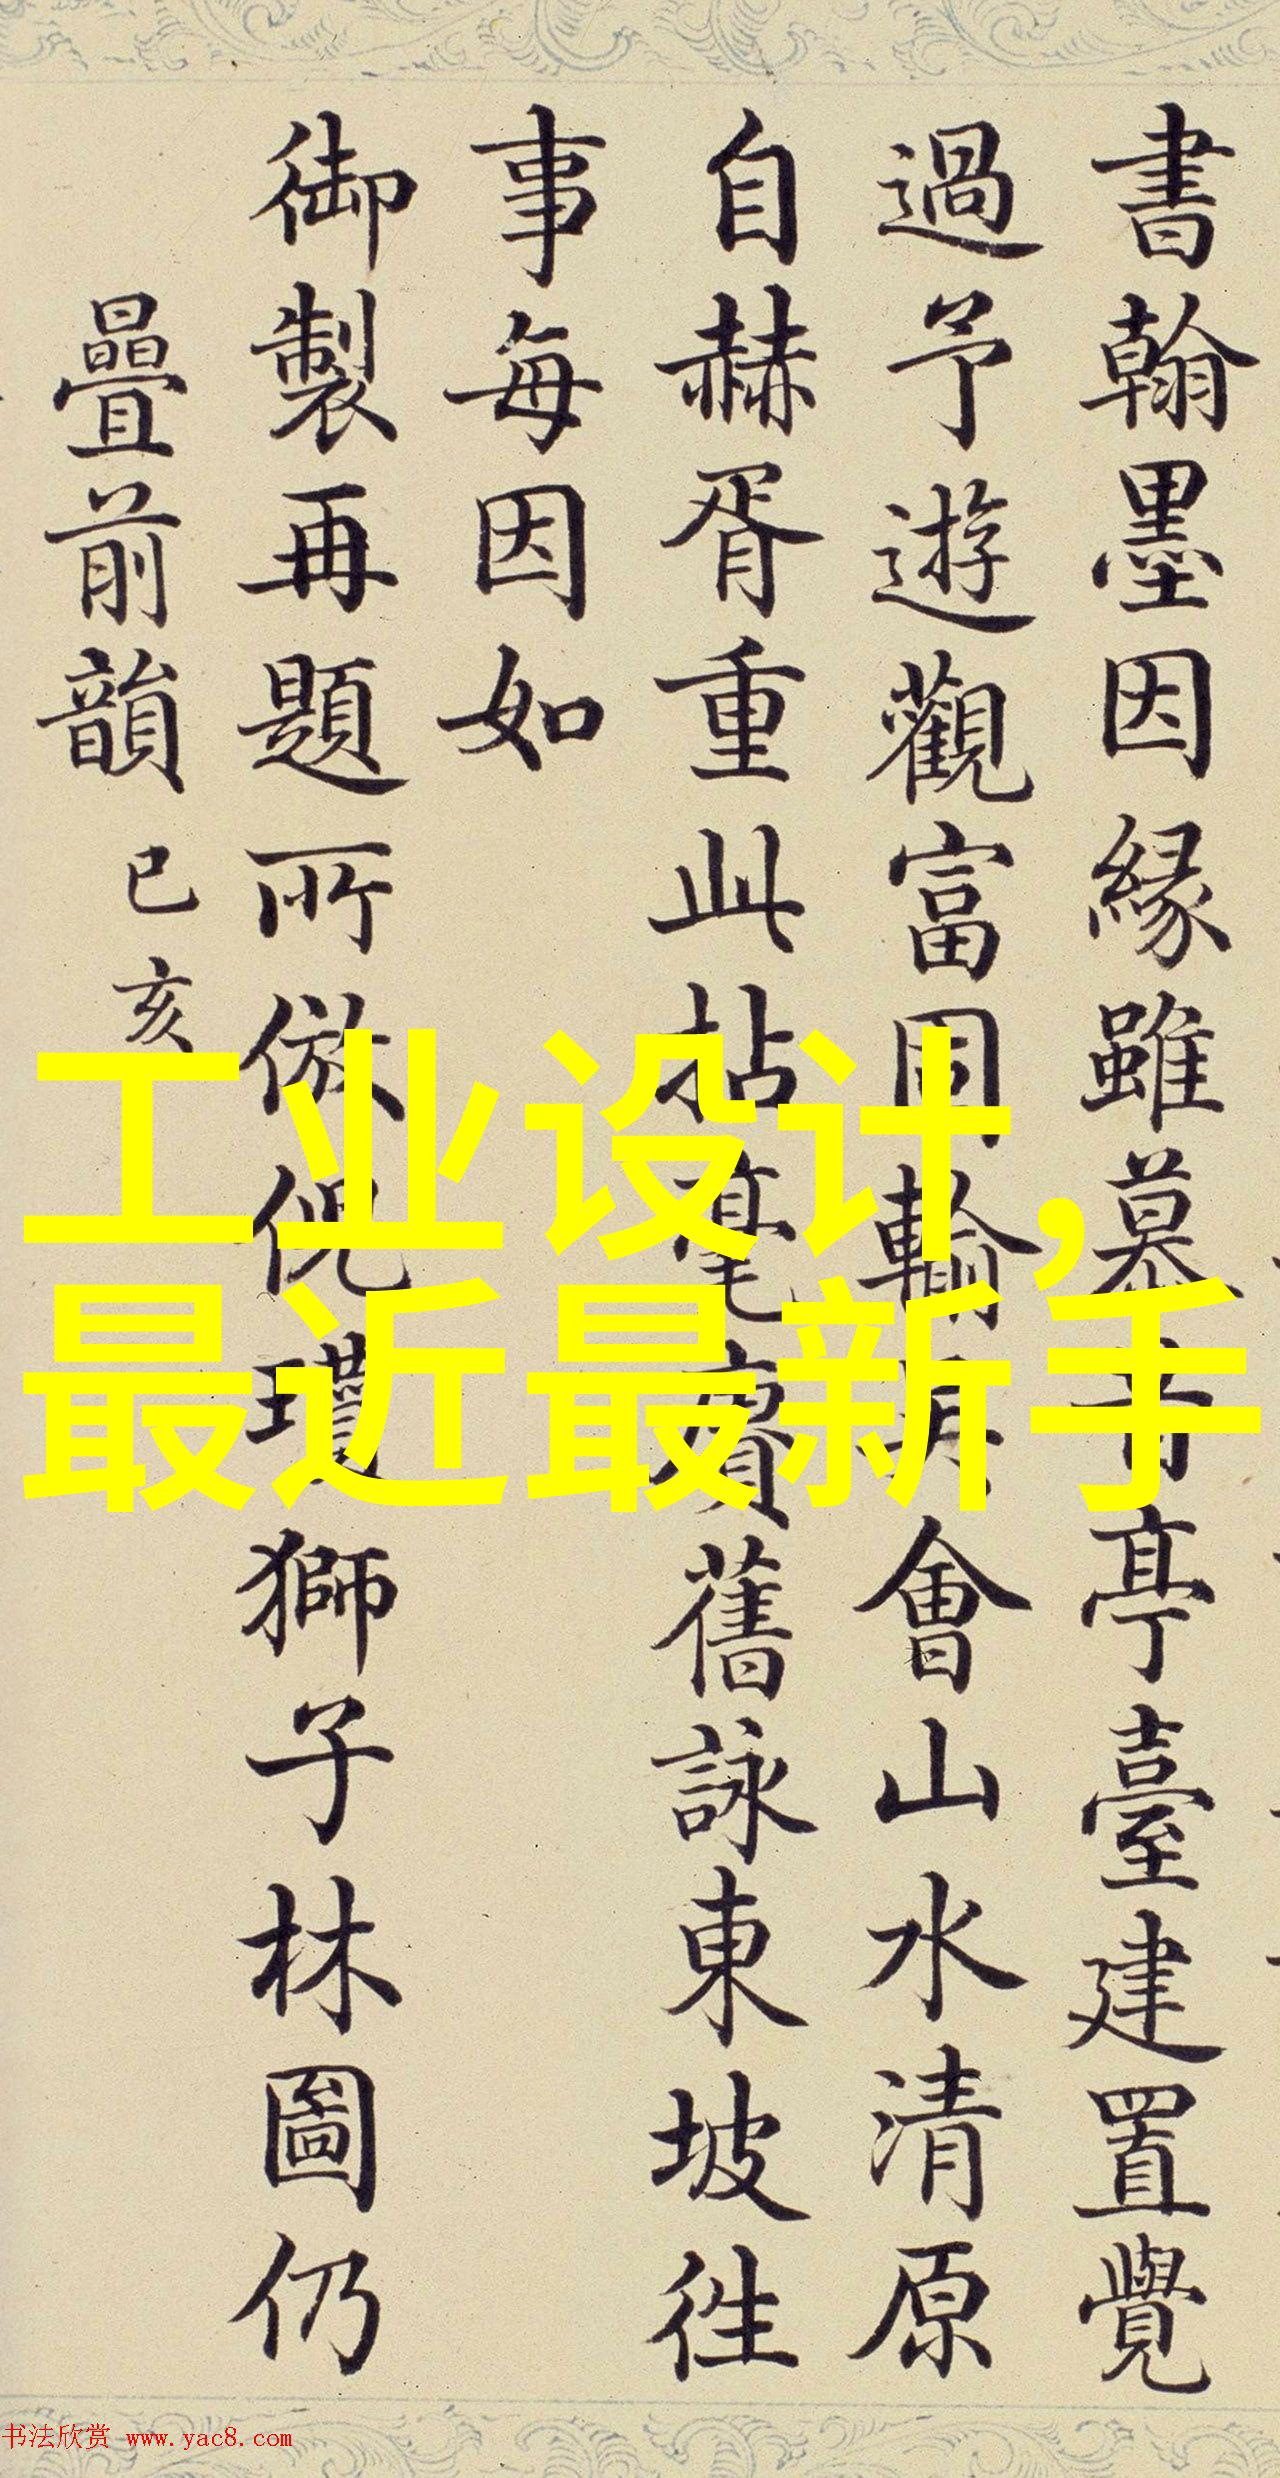 書翰墨因緣雖慕亭臺建置覺
過予遊觀富周輸會山水清原
自赫胥重此拈毫賡舊詠東坡徃
事每因如
御製再題所倣倪瓚獅子林圖仍
疊前韻 己亥
工业设计，
最近最新手
书法欣赏 www.yac8.com